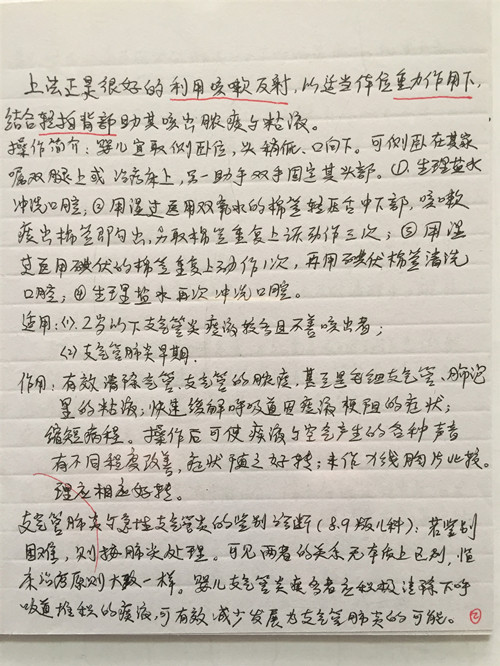 上法正是很好的利用咳嗽反射,以适当体位重力作用下,
结合轻拍背部助其咳出脓痰与粘液。
操作简介:婴儿宜取侧卧位,头稍低、口向下。可侧卧在其家
属双腿上或治疗床上,另一助手双手固定其头部。①生理盐水
冲洗口腔;②用浸过医用双氧水的棉签轻压舌中下部,咳嗽
痰出棉签即勾出,另取棉签重复上述动作三次;③用浸
过医用碘伏的棉签重复上动作1次,再用碘伏棉签清洗
口腔;④生理盐水再次冲洗口腔。
适用:(1).2岁以下支气管炎痰液较多且不善咳出者;
(2)支气管肺炎早期.
作用:有效清除气管、支气管的脓痰,甚至是毛细支气管、肺泡
里的粘液;快速缓解呼吸道因痰液梗阻的症状;
缩短病程。操作后可使痰液与空气产生的各种声音
有不同程度改善,症状随之好转;未作X线胸片比较。
理应相应好转。
支气管肺炎与急性支气管炎的鉴别诊断(8.9版儿科):若鉴别
困难,则按肺炎处理。可见两者的关系无本质上区别,临
床治疗原则大致一样。婴儿支气管炎痰多者应积极清除下呼
吸道堆积的痰液,可有效减少发展为支气管肺炎的可能。②